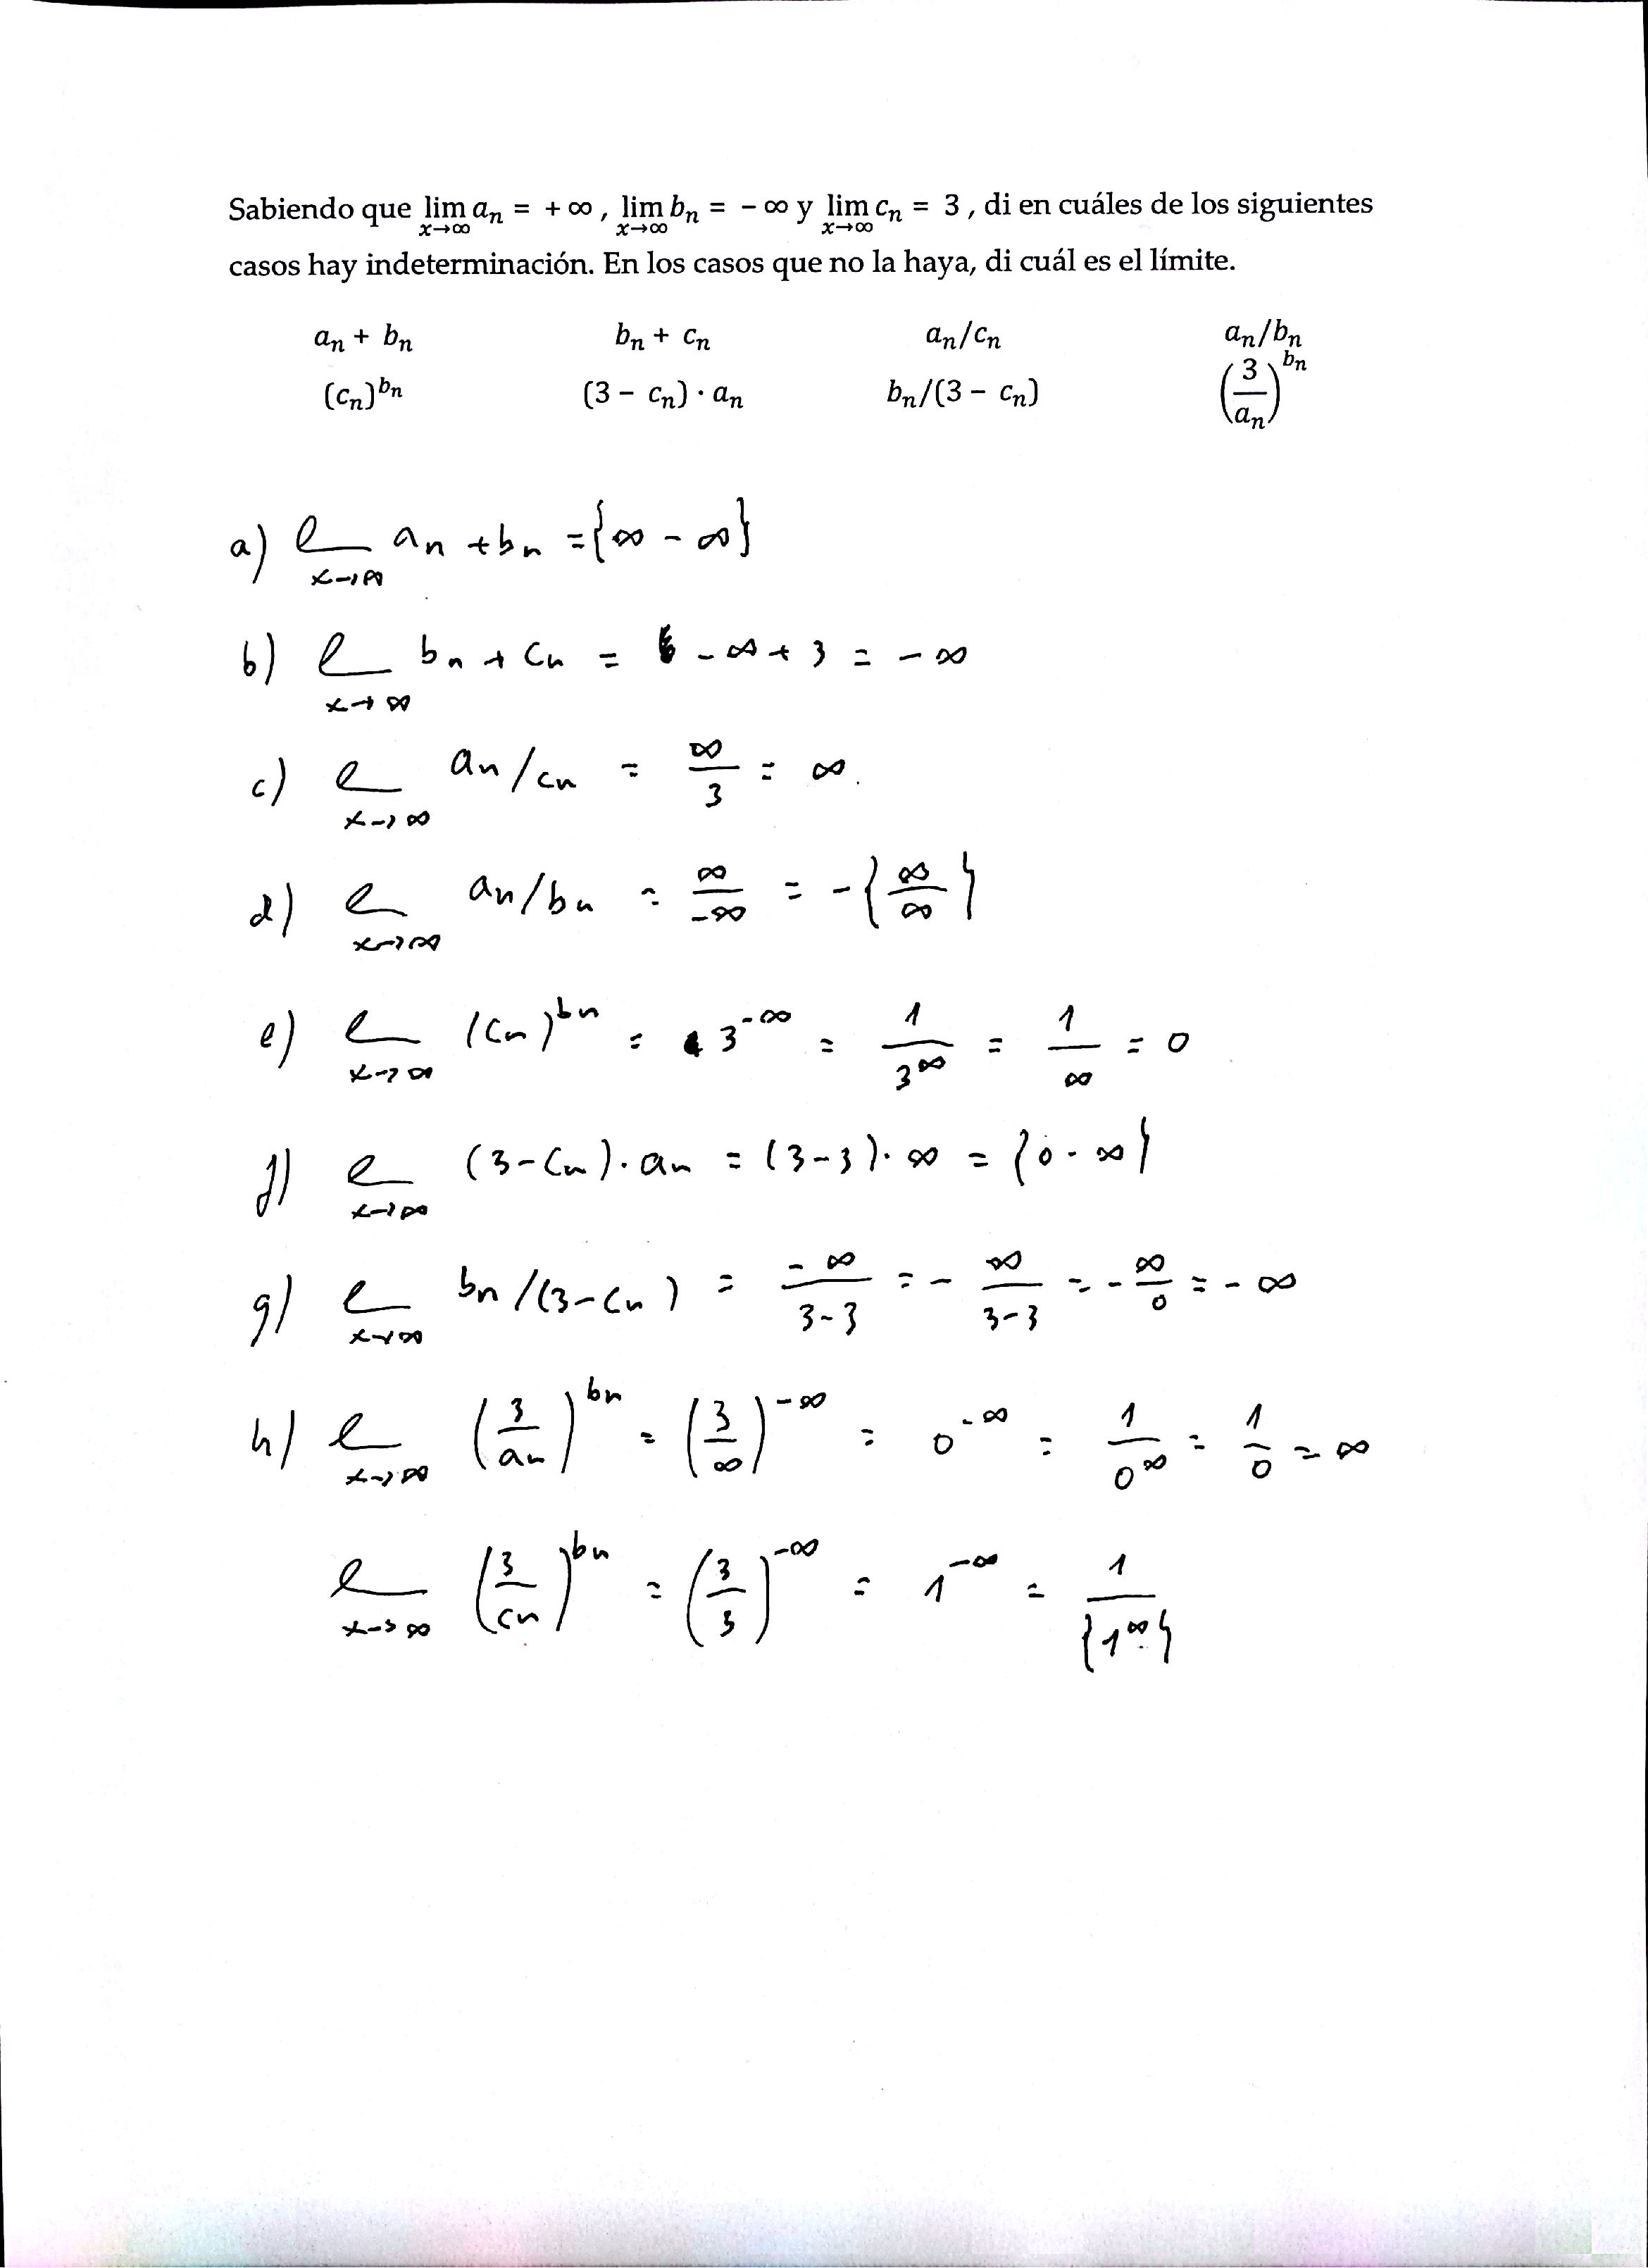 Sabiendo que lim aₙ = + ∞ , lim bₙ = − ∞ y lim cₙ = 3 , di en cuáles de los siguientes
x→∞ x→∞ x→∞
casos hay indeterminación. En los casos que no la haya, di cuál es el límite.
aₙ + bₙ bₙ + cₙ aₙ/cₙ aₙ/bₙ
(cₙ)^bₙ (3 − cₙ) · aₙ bₙ/(3 − cₙ) (3/aₙ)^bₙ
a) l x→∞ an + bn = {∞ - ∞}
b) l x→∞ bn + cn = - ∞ + 3 = - ∞
c) l x→∞ an/cn = ∞/3 = ∞.
d) l x→∞ an/bn = ∞/-∞ = -{∞/∞}
e) l x→∞ (cn)^bn = 3^-∞ = 1/3^∞ = 1/∞ = 0
f) l x→∞ (3-cn)·an = (3-3)·∞ = {0·∞}
g) l x→∞ bn/(3-cn) = -∞/3-3 = - ∞/3-3 = - ∞/0 = - ∞
h) l x→∞ (3/an)^bn = (3/∞)^-∞ = 0^-∞ = 1/0^∞ = 1/0 = ∞
l x→∞ (3/cn)^bn = (3/3)^-∞ = 1^-∞ = 1/{1^∞}